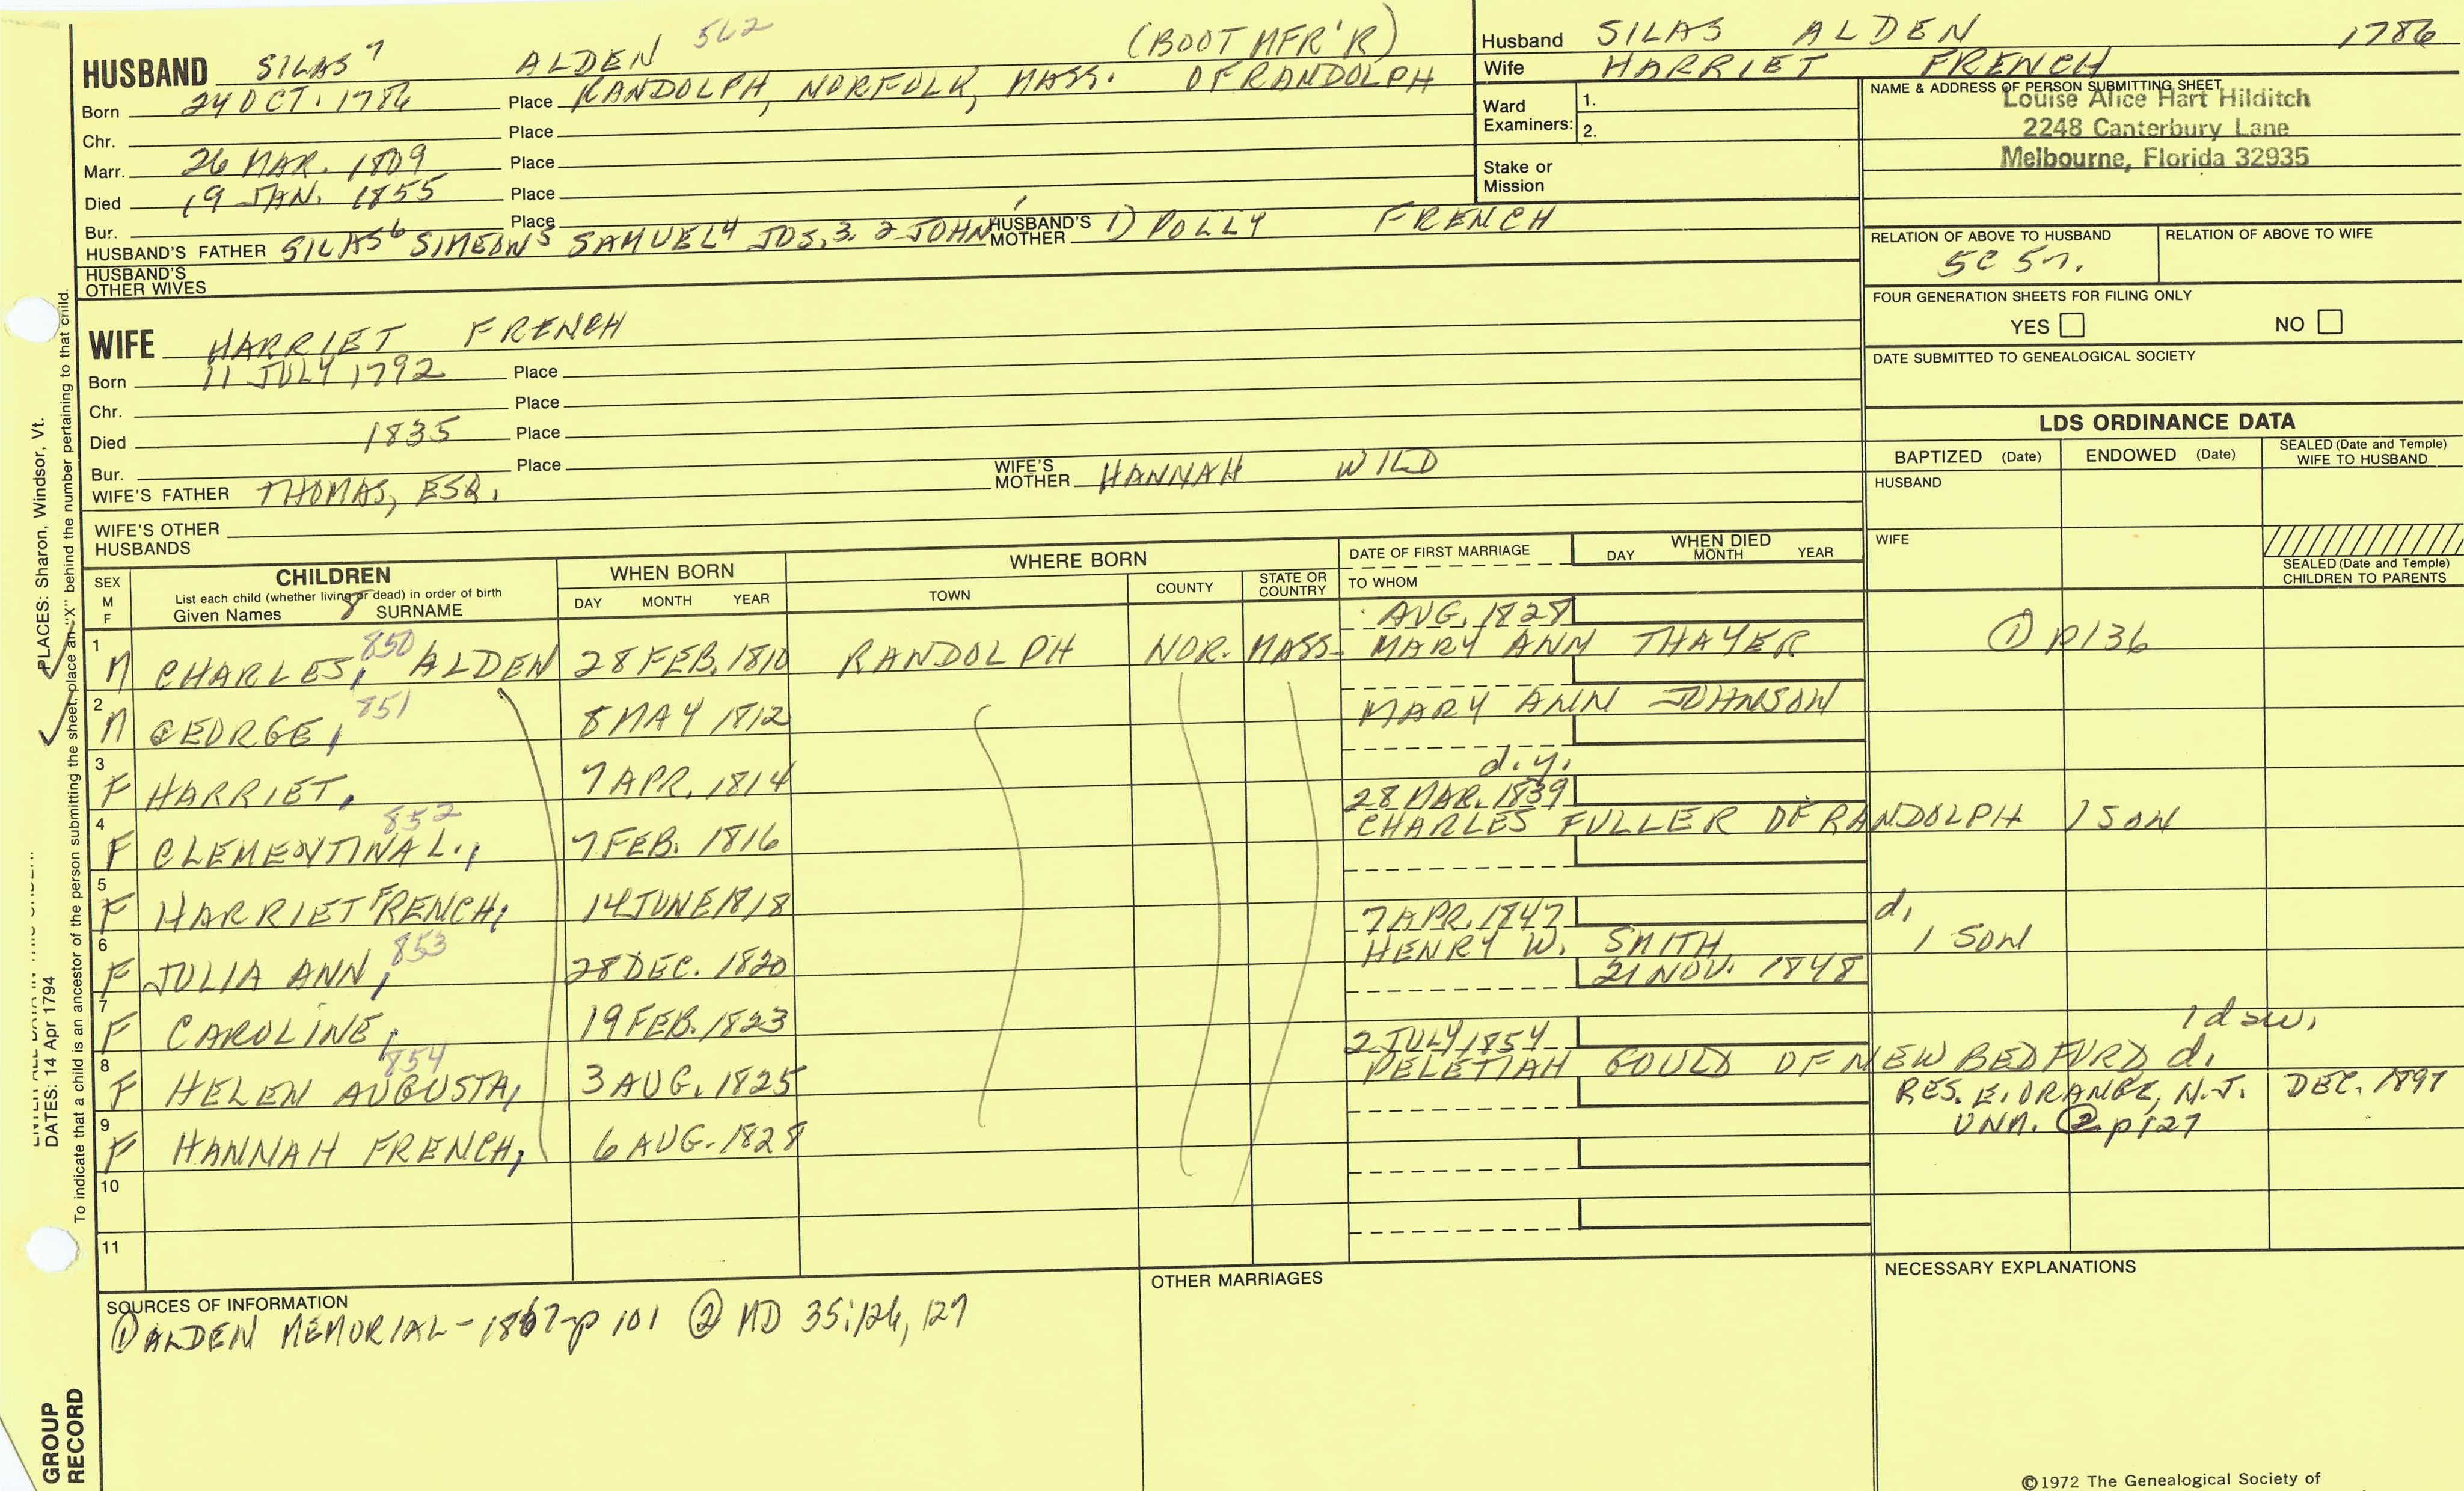 HUSBAND SILAS7 ALDEN 562 (BOOT MFR'R)
Born 24 OCT. 1786 Place RANDOLPH, NORFOLK, MASS. OF RANDOLPH
Chr. Place
Marr. 26 MAR. 1809 Place
Died 19 JAN. 1855 Place
Bur. Place
HUSBAND'S FATHER SILAS6 SIMEON5 SAMUEL4 JOS. 3 2 JOHN1 HUSBAND'S MOTHER 1) POLLY FRENCH
HUSBAND'S OTHER WIVES
WIFE HARRIET FRENCH
Born 11 JULY 1792 Place
Chr. Place
Died 1835 Place
Bur. Place
WIFE'S FATHER THOMAS, ESQ. WIFE'S MOTHER HANNAH WILD
WIFE'S OTHER HUSBANDS
Husband SILAS ALDEN 1786
Wife HARRIET FRENCH
Ward Examiners: 1. 2.
Stake or Mission
NAME & ADDRESS OF PERSON SUBMITTING SHEET
Louise Alice Hart Hilditch
2248 Canterbury Lane
Melbourne, Florida 32935
RELATION OF ABOVE TO HUSBAND RELATION OF ABOVE TO WIFE
5C 5r.
FOUR GENERATION SHEETS FOR FILING ONLY
YES NO
DATE SUBMITTED TO GENEALOGICAL SOCIETY
LDS ORDINANCE DATA
BAPTIZED (Date) ENDOWED (Date) SEALED (Date and Temple) WIFE TO HUSBAND
HUSBAND
WIFE
SEALED (Date and Temple) CHILDREN TO PARENTS
SEX M F
CHILDREN
List each child (whether living or dead) in order of birth
Given Names 8 SURNAME
WHEN BORN
DAY MONTH YEAR
WHERE BORN
TOWN COUNTY STATE OR COUNTRY
DATE OF FIRST MARRIAGE
TO WHOM
WHEN DIED
DAY MONTH YEAR
AUG. 1828
1 M CHARLES, 850 ALDEN 28 FEB. 1810 RANDOLPH NOR. MASS. MARY ANN THAYER ① p136
2 M GEORGE, 851 8 MAY 1812 MARY ANN JOHNSON
3 F HARRIET, 7 APR. 1814 d.y.
28 MAR. 1839
4 F CLEMENTINA L., 852 7 FEB. 1816 CHARLES FULLER OF RANDOLPH 1 SON
5 F HARRIET FRENCH, 14 JUNE 1818
7 APR. 1847 d.
6 F JULIA ANN, 853 28 DEC. 1820 HENRY W. SMITH 1 SON
21 NOV. 1848
7 F CAROLINE, 19 FEB. 1823
2 JULY 1854 1 dau.
8 F HELEN AUGUSTA, 854 3 AUG. 1825 PELETIAH GOULD OF NEW BEDFORD d.
RES. E. ORANGE, N.J. DEC. 1897
9 F HANNAH FRENCH, 6 AUG. 1828 UNM. ② p127
10
11
SOURCES OF INFORMATION
① ALDEN MEMORIAL - 1867 - p 101 ② MD 35:126, 127
OTHER MARRIAGES
NECESSARY EXPLANATIONS
©1972 The Genealogical Society of
PLACES: Sharon, Windsor, Vt.
DATES: 14 Apr 1794
To indicate that a child is an ancestor of the person submitting the sheet, place an "X" behind the number pertaining to that child.
GROUP
RECORD